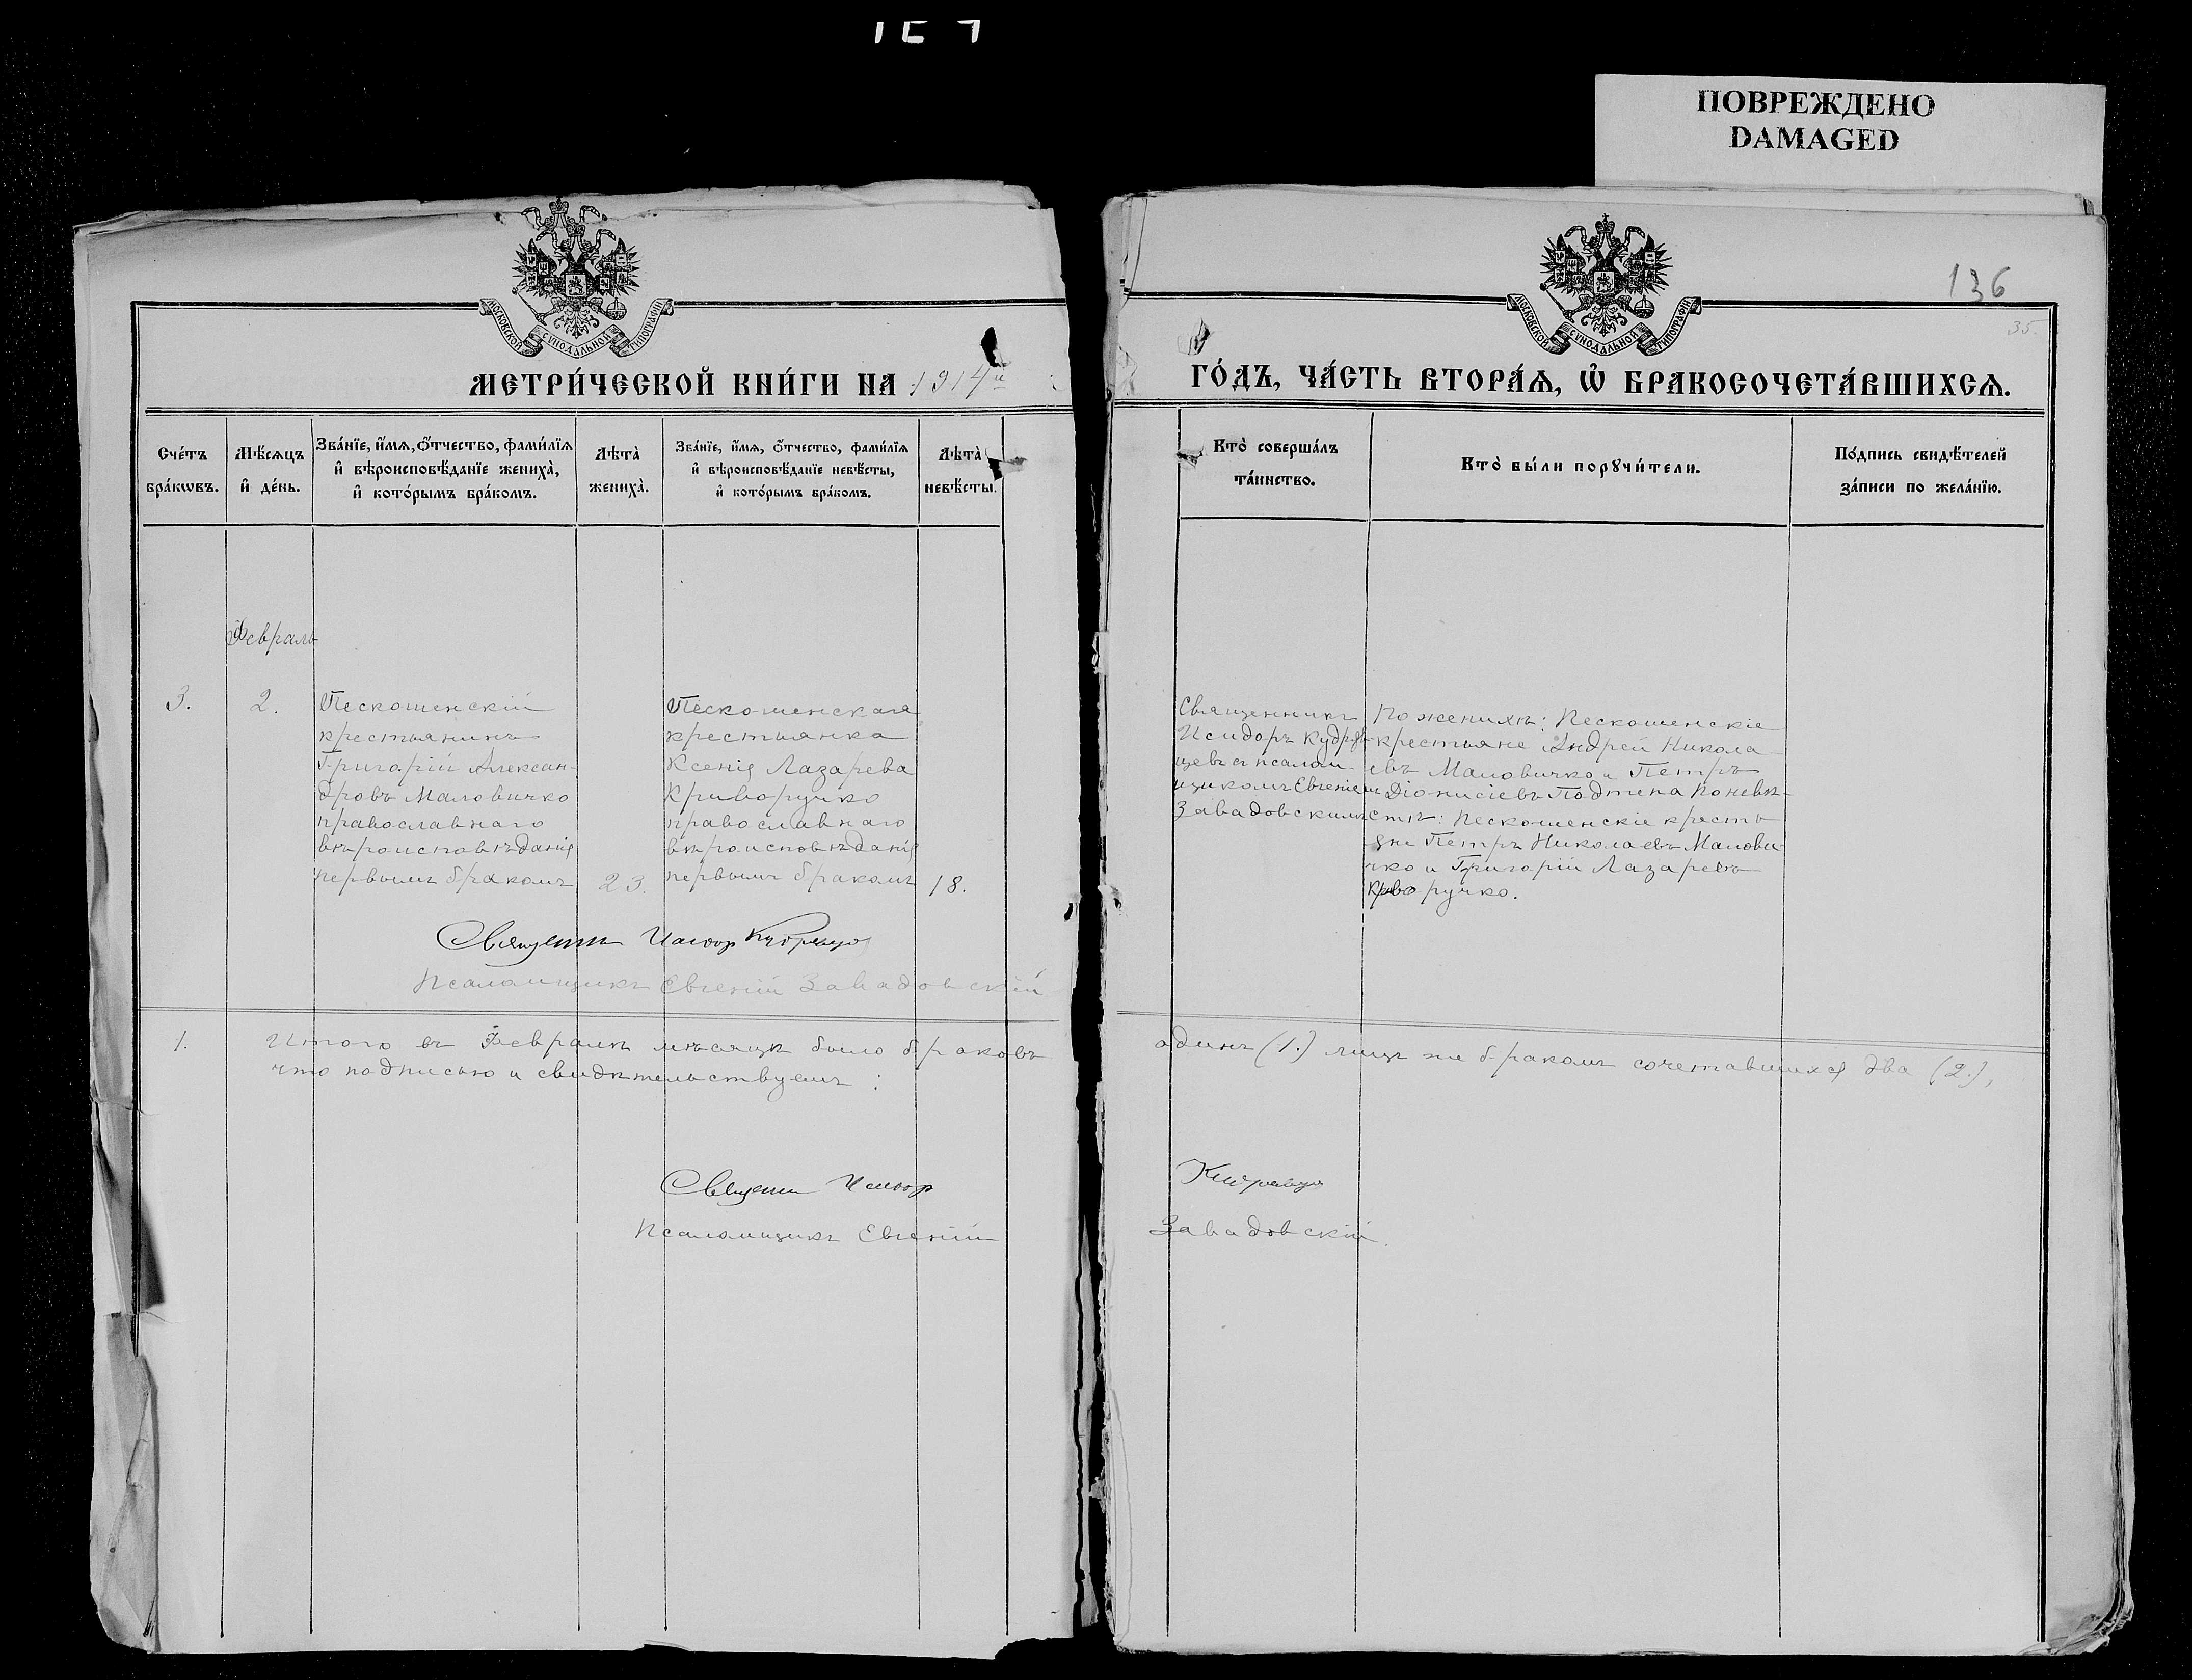 ПОВРЕЖДЕНО
DAMAGED
136
35.
МОСКОВСКОЙ СѴНОДАЛЬНОЙ ТИПОГРАФІИ
МОСКОВСКОЙ СѴНОДАЛЬНОЙ ТИПОГРАФІИ
МЕТРИ́ЧЕСКОЙ КНИ́ГИ НА 1914й
ГО́ДЪ, ЧА́СТЬ ВТОРА́Ѧ, Ѡ҆ БРАКОСОЧЕТА́ВШИХСѦ.
Сче́тъ
бра́кѡвъ.
Мѣ́сѧцъ
и҆ де́нь.
Зва́нїе, и҆́мѧ, ѻ҆́тчество, фами́лїѧ
и҆ вѣроисповѣ́данїе жениха̀,
и҆ кото́рымъ бра́комъ.
Лѣ́та̀
жениха̀.
Зва́нїе, и҆́мѧ, ѻ҆́тчество, фами́лїѧ
и҆ вѣроисповѣ́данїе невѣ́сты,
и҆ кото́рымъ бра́комъ.
Лѣ́та̀
невѣ́сты.
Кто̀ соверша́лъ
та́инство.
Кто̀ бы́ли порꙋчи́тели.
По́дпись свидѣ́телей
за́писи по жела́нїю.
Февраль
3.
2.
Пескошенскій
крестьянинъ
Григорій Алексан-
дровъ Маловичко
православнаго
вѣроисповѣданія
первымъ бракомъ
23.
Пескошенская
крестьянка
Ксенія Лазарева
Криворучко
православнаго
вѣроисповѣданія
первымъ бракомъ
18.
Священникъ
Исидоръ Кудряв-
цевъ съ псалом-
щикомъ Евгеніемъ
Завадовскимъ
По женихѣ: Пескошенскіе
крестьяне Андрей Никола-
евъ Маловичко и Петръ
Діонисіевъ Подтепа По невѣ-
стѣ: Пескошенскіе кресть-
яне Петръ Николаевъ Малови-
чко и Григорій Лазаревъ
Криворучко.
Священникъ Исидоръ Кудрявцевъ
Псаломщикъ Евгеній Завадовскій
1. Итого въ Февралѣ мѣсяцѣ было браковъ одинъ (1.) лицъ же бракомъ сочетавшихся два (2.),
что подписью и свидѣтельствуемъ:
Священникъ Исидоръ Кудрявцевъ
Псаломщикъ Евгеній Завадовскій.